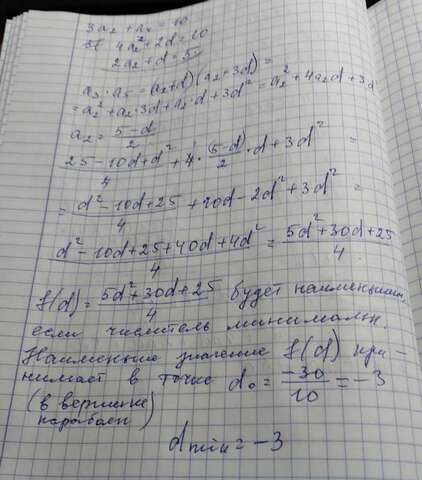 3a₂ + a₄ = 10
4a₂ + 2d = 10
2a₂ + d = 5
a₃ · a₅ = (a₂+d)(a₂+3d) =
= a₂² + a₂·3d + a₂·d + 3d² = a₂² + 4a₂d + 3d
a₂ = (5-d)/2
(25-10d+d²)/4 + 4·(5-d)/2·d + 3d² =
= (d²-10d+25)/4 + 10d - 2d² + 3d² =
(d²-10d+25+40d+4d²)/4 = (5d²+30d+25)/4
f(d) = (5d²+30d+25)/4 будет наименьшим,
если числитель минимальн.
Наименьшее значение f(d) при-
нимает в точке d₀ = -30/10 = -3
(в вершине
параболы)
dmin = -3